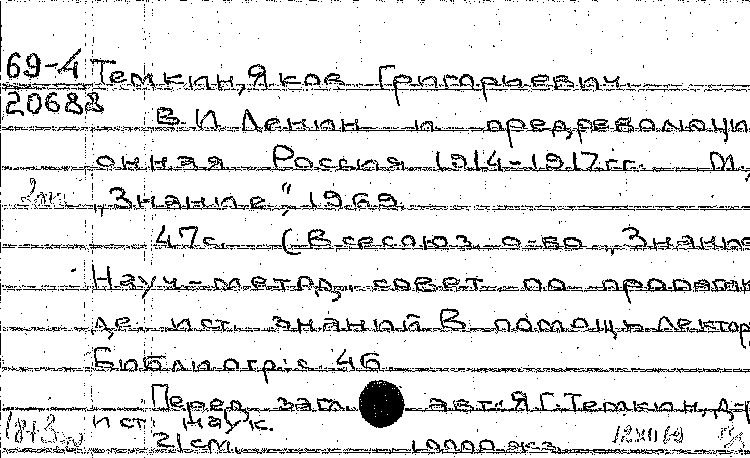 69-4 Темкин, Яков Григорьевич.
20683
В.И. Ленин и предреволюци
онная Россия 1914-1917 гг. М.,
„Знание“, 1969.
47 с. (Всесоюз. о-во „Знание
Науч.-метод. совет по пропаган
де ист. знаний В помощь лектор
Библиогр.: с. 46
Перед загл. авт.: Я.Г. Темкин, д-р
ист. наук.
21 см. 10000 экз.